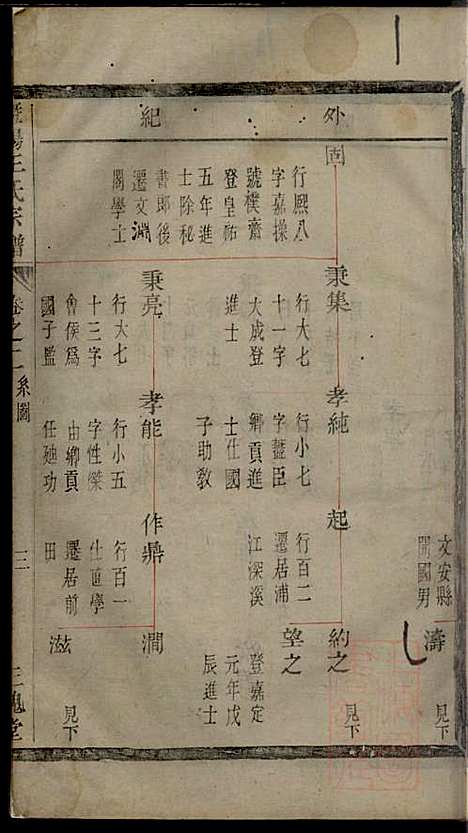 外
紀
固
行熙八
字嘉操
號樸齋
登皇祐
五年進
士除秘
書郎後
遷文淵
閣學士
秉集
行大七
十一字
大成登
進士
秉亮
行大七
十三字
會侯爲
國子監
孝純
行小七
字藎臣
鄉貢進
士仕國
子助教
孝能
行小五
字性傑
由鄉貢
任廸功
起
行百二
遷居浦
江深溪
作鼎
行百一
仕直學
遷居前
田
文安縣
開國男
濤
見下
約之
見下
望之
登嘉定
元年戊
辰進士
澗
滋
見下
暨陽王氏宗譜
卷之二系圖
三
三槐堂